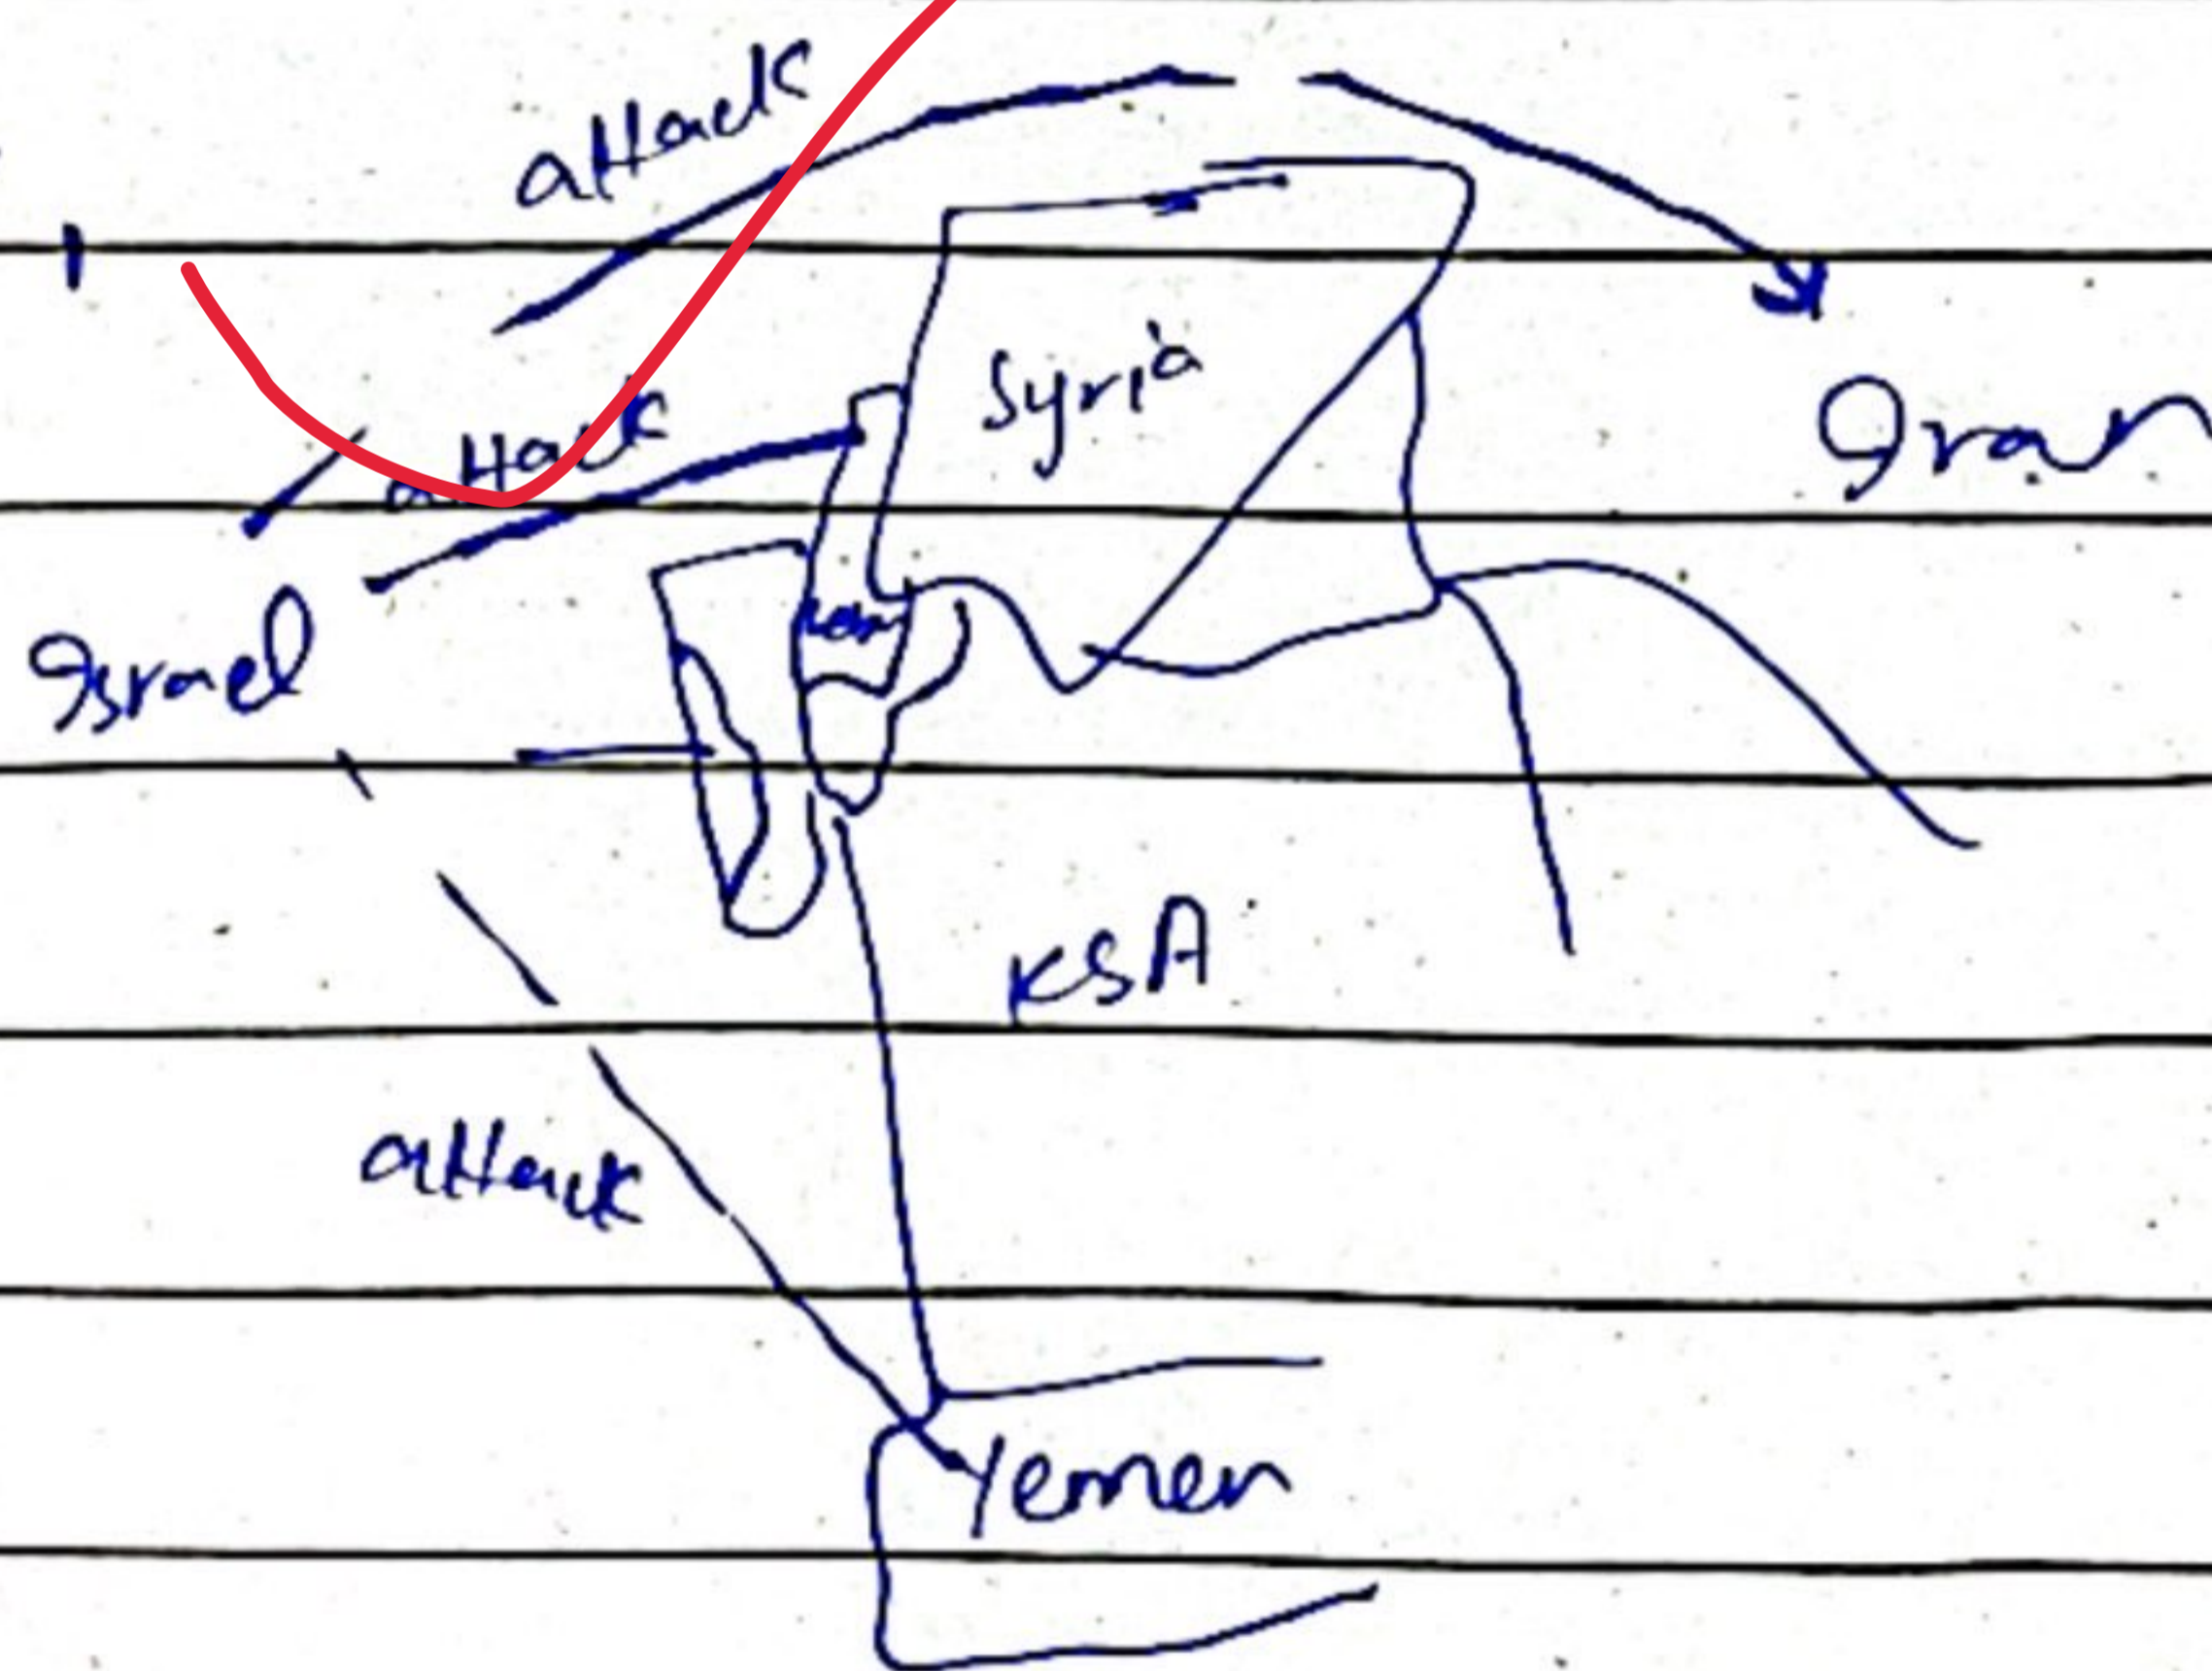 attack
Syria
Iran
attack
Israel
KSA
attack
Yemen